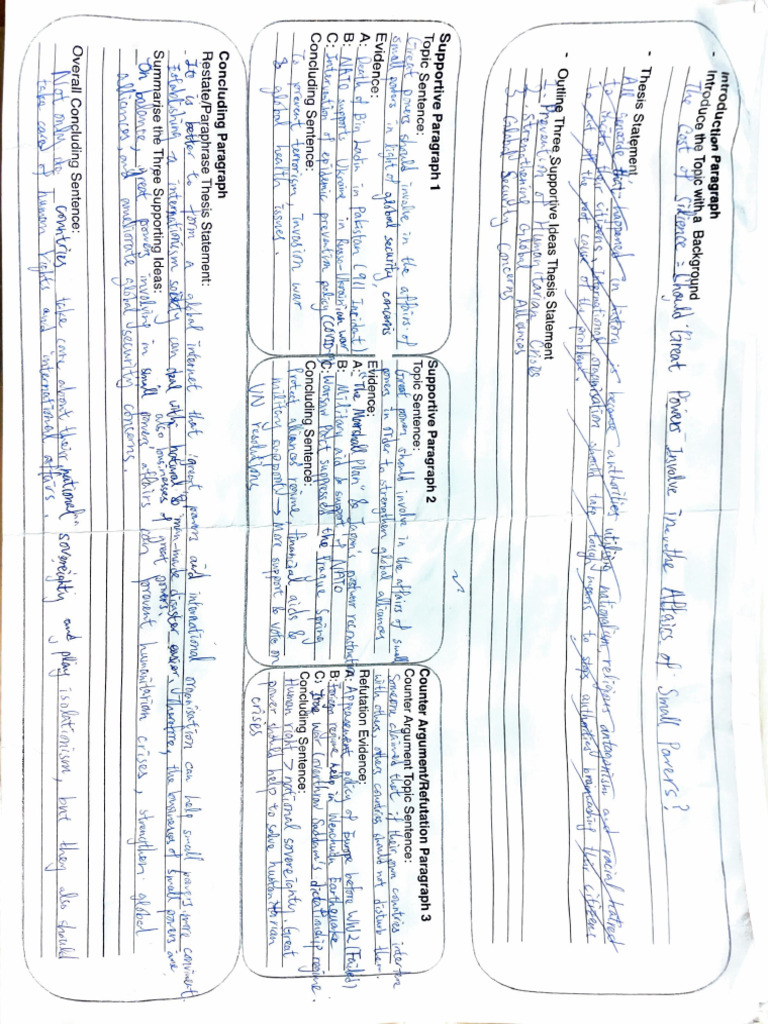 Introduction Paragraph
- Introduce the Topic with a Background
The Cost of Silence : Should Great Powers Involve In the Affairs of Small Powers?
- Thesis Statement
All genocide that happened in history is because authorities utilizing nationalism, religious antagonism and racial hatred
to their citizens, International organisation should take tough means to stop authorities brainwashing their citizens
to cut off the root cause of the problem.
- Outline Three Supportive Ideas Thesis Statement
1. Prevention of Humanitarian Crises
2. Strengthening Global Alliances
3. Global Security Concerns
Supportive Paragraph 1
Topic Sentence:
Great powers should involve in the affairs of
small powers in light of global security concerns
Evidence:
A: Death of Bin Ladin in Pakistan (911 Incident)
B: NATO supports Ukraine in Russo-Ukrainian war
C: Intervention of epidemic prevention policy (COVID-19)
Concluding Sentence:
To prevent terrorism, invasion war
& global health issues.
Supportive Paragraph 2
Topic Sentence:
Great powers should involve in the affairs of small
powers in order to strengthen global alliances
Evidence:
A: "The Marshall Plan" & Japan's postwar reconstruction
B: Military aid & support of NATO
C: Warsaw Pact suppressed the Prague Spring
Concluding Sentence:
Protect alliances regime, financial aids &
military support → More support to vote on
UN resolutions
Counter Argument/Refutation Paragraph 3
Counter Argument Topic Sentence:
Someone claimed that if their own countries interfere
with others, others countries should not disturb them.
Refutation Evidence:
A: Appeasement policy of Europe before WW2 (Failed)
B: Foreign regime help in Wenchuan Earthquake
C: Iraq war overthrow Saddam's dictatorship regime.
Concluding Sentence:
Human right > national sovereignty. Great
power should help to solve humanitarian
crises
Concluding Paragraph
Restate/Paraphrase Thesis Statement:
- It is better to form a global internet that great powers and international organisation can help small powers more convenient.
Establishing a internationalism society can deal with natural & man-made disaster easier. Therefore, the businesses of small powers are
also businesses of great powers.
Summarise the Three Supporting Ideas:
On balance, great powers involving in small powers' affairs can prevent humanitarian crises, strengthen global
alliances, and ameliorate global security concerns.
Overall Concluding Sentence:
Not only do countries take care about their national sovereighty and play isolationism, but they also should
take care of human rights and international affairs.